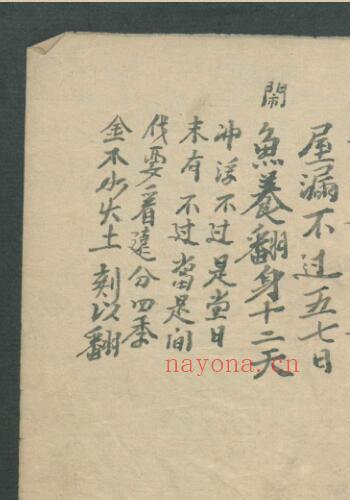 屋漏不过五七日
鬧
魚養翻身十二天
冲浮不过是当日
末有不过當是间
伐要看遠分四季
金木水火土刻以翻
nayona.cn